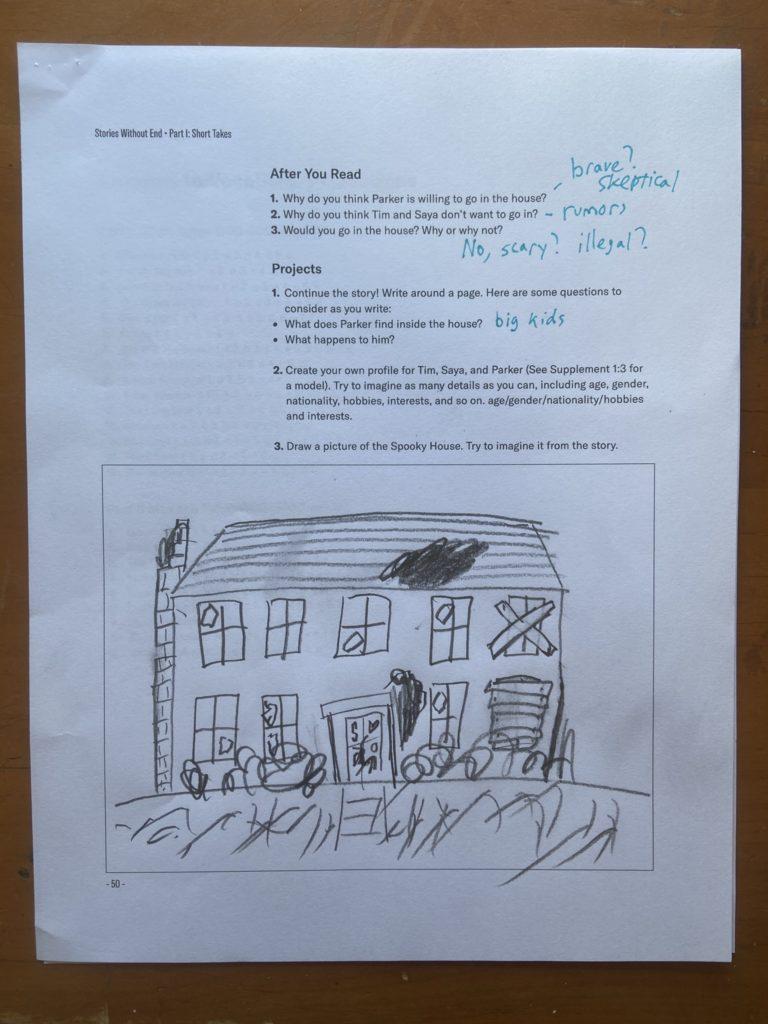 Stories Without End • Part I: Short Takes
After You Read
brave?
skeptical
1. Why do you think Parker is willing to go in the house?
2. Why do you think Tim and Saya don't want to go in? - rumors
3. Would you go in the house? Why or why not?
No, scary? illegal?
Projects
1. Continue the story! Write around a page. Here are some questions to
consider as you write:
• What does Parker find inside the house? big kids
• What happens to him?
2. Create your own profile for Tim, Saya, and Parker (See Supplement 1:3 for
a model). Try to imagine as many details as you can, including age, gender,
nationality, hobbies, interests, and so on. age/gender/nationality/hobbies
and interests.
3. Draw a picture of the Spooky House. Try to imagine it from the story.
- 50 -